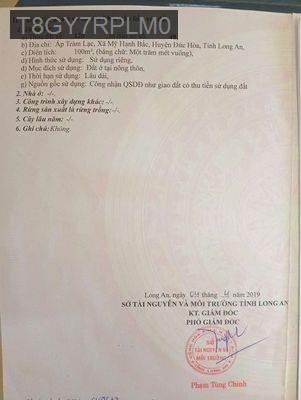 T8GY7RPLM0
b) Địa chỉ: Ấp Tràm Lạc, Xã Mỹ Hạnh Bắc, Huyện Đức Hòa, Tỉnh Long An,
c) Diện tích: 100m², (bằng chữ: Một trăm mét vuông),
d) Hình thức sử dụng: Sử dụng riêng,
đ) Mục đích sử dụng: Đất ở tại nông thôn,
e) Thời hạn sử dụng: Lâu dài,
g) Nguồn gốc sử dụng: Công nhận QSDĐ như giao đất có thu tiền sử dụng đất
2. Nhà ở: -/-.
3. Công trình xây dựng khác: -/-.
4. Rừng sản xuất là rừng trồng: -/-.
5. Cây lâu năm: -/-.
6. Ghi chú: Không.
Long An, ngày 04 tháng năm 2019
SỞ TÀI NGUYÊN VÀ MÔI TRƯỜNG TỈNH LONG AN
KT. GIÁM ĐỐC
PHÓ GIÁM ĐỐC
SỞ
TÀI NGUYÊN VÀ
MÔI TRƯỜNG
Phạm Tùng Chinh